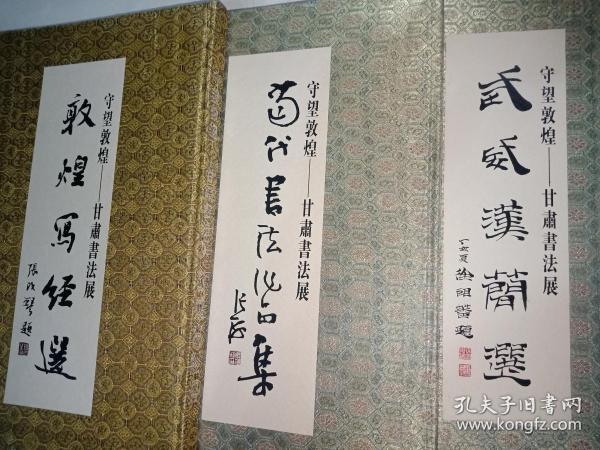 守望敦煌——甘肅書法展
敦煌寫經選
張改琴題
守望敦煌——甘肅書法展
當代書法作品集
張海
守望敦煌——甘肅書法展
武威漢簡選
丁亥夏徐祖蕃題
孔夫子旧书网
www.kongfz.com